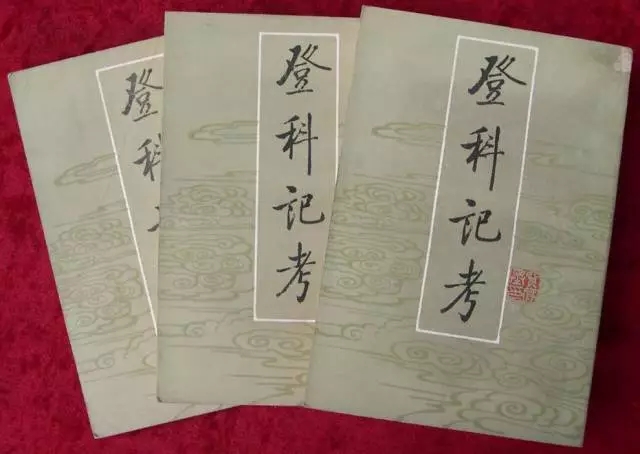 登科记考
登科记考
登科